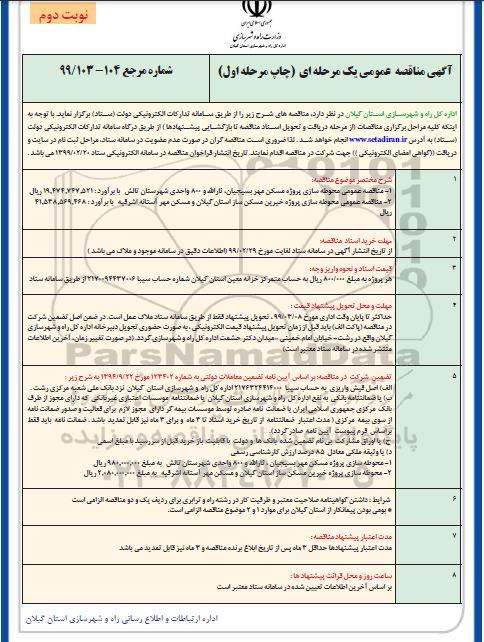 نوبت دوم
وزارت راه و شهرسازی
اداره کل راه و شهرسازی استان گیلان
آگهی مناقصه عمومی یک مرحله ای (چاپ مرحله اول)
شماره مرجع ۱۰۴- ۹۹/۱۰۳
اداره کل راه و شهرسازی استان گیلان در نظر دارد، مناقصه های شرح زیر را از طریق سامانه تدارکات الکترونیکی دولت (ستاد) برگزار نماید. با توجه به
اینکه کلیه مراحل برگزاری مناقصات (از مرحله دریافت و تحویل اسناد مناقصه تا بازگشایی پیشنهادها) از طریق درگاه سامانه تدارکات الکترونیکی دولت
(ستاد) به آدرس www.setadiran.ir انجام خواهد شد. لذا ضروری است مناقصه گران در صورت عدم عضویت در سامانه ستاد، مراحل ثبت نام در سایت و
دریافت ((گواهی امضای الکترونیکی)) جهت شرکت در مناقصه اقدام نمایند. تاریخ انتشار فراخوان مناقصه در سامانه ستاد ۱۳۹۹/۰۲/۲۰ می باشد.
۱
شرح مختصر موضوع مناقصه:
۱- مناقصه عمومی محوطه سازی پروژه مسکن مهر بسیجیان، ثارالله و ۸۰۰ واحدی شهرستان تالش با برآورد: ۱۹,۴۷۴,۷۴۷,۵۲۱ ریال
۲- مناقصه عمومی محوطه سازی پروژه خیرین مسکن ساز استان گیلان و مسکن مهر آستانه اشرفیه با برآورد: ۴۱,۵۳۸,۵۶۹,۴۶۸
ریال
۲
مهلت خرید اسناد مناقصه:
از تاریخ انتشار آگهی در سامانه ستاد لغایت مورخ ۹۹/۰۲/۲۹ (اطلاعات دقیق در سامانه موجود و ملاک می باشد)
۳
قیمت اسناد و نحوه واریز وجه:
هر پروژه به مبلغ ۸۰۰/۰۰۰ ریال به حساب متمرکز خزانه معین استان گیلان شماره حساب سیبا ۲۱۷۰۰۹۴۴۳۷۰۰۶ از طریق سامانه ستاد
۴
مهلت و محل تحویل پیشنهاد قیمت:
حداکثر تا پایان وقت اداری مورخ ۹۹/۰۳/۰۸، تحویل پیشنهاد فقط از طریق سامانه ستاد ملاک عمل است. در ضمن اصل تضمین شرکت
در مناقصه (پاکت الف) باید قبل از زمان تحویل پیشنهاد قیمت الکترونیکی، به صورت حضوری تحویل دبیرخانه اداره کل راه و شهرسازی
گیلان واقع در رشت- خیابان امام خمینی - میدان دکتر حشمت اداره کل راه و شهرسازی گردد. (در صورت تغییر زمان، آخرین اطلاعات
منتشر شده در سامانه ستاد معتبر است)
۵
تضمین شرکت در مناقصه: بر اساس آیین نامه تضمین معاملات دولتی به شماره ۱۲۳۴۰۲ مورخ ۱۳۹۴/۹/۲۲ به شرح زیر:
الف) اصل فیش واریزی به حساب سیبا ۲۱۷۶۳۲۶۴۱۴۰۰۰ اداره کل راه و شهرسازی استان گیلان نزد بانک ملی شعبه مرکزی رشت.
ب) یا ضمانتنامه بانکی به نفع اداره کل راه و شهرسازی استان گیلان یا ضمانتنامه موسسات اعتباری غیربانکی که دارای مجوز از طرف
بانک مرکزی جمهوری اسلامی ایران یا ضمانت نامه صادره توسط موسسات بیمه گر دارای مجوز لازم برای فعالیت و صدور ضمانت نامه
از سوی بیمه مرکزی (مدت اعتبار ضمانتنامه از تاریخ خرید اسناد تا ۳ ماه و برای ۳ ماه نیز قابل تمدید باشد. ضمانت نامه باید فقط
براساس فرم پیوست آیین نامه صادر گردد).
ج) یا اوراق مشارکت بی نام تضمین شده بانک ها و دولت با قابلیت باز خرید قبل از سررسید با مبلغ اسمی
د) یا وثیقه ملکی معادل ۸۵ درصد ارزش کارشناسی رسمی
۱- محوطه سازی پروژه مسکن مهر بسیجیان، ثارالله و ۸۰۰ واحدی شهرستان تالش به مبلغ ۹۸۰,۰۰۰,۰۰۰ ریال
۲- محوطه سازی پروژه خیرین مسکن ساز استان گیلان و مسکن مهر آستانه اشرفیه به مبلغ ۲,۰۸۰,۰۰۰,۰۰۰ ریال
۶
شرایط: داشتن گواهینامه صلاحیت معتبر و ظرفیت کار در رشته راه و ترابری برای ردیف یک و دو مناقصه الزامی است
* بومی بودن پیمانکار از استان گیلان برای موارد ۱ و ۲ موضوع مناقصه الزامی است.
۷
مدت اعتبار پیشنهاد مناقصه:
مدت اعتبار پیشنهادها حداقل ۳ ماه پس از تاریخ ابلاغ برنده مناقصه و ۳ ماه نیز قابل تمدید می باشد
۸
ساعت روز و محل قرائت پیشنهاد ها:
بر اساس آخرین اطلاعات تعیین شده در سامانه ستاد معتبر است
اداره ارتباطات و اطلاع رسانی راه و شهرسازی استان گیلان